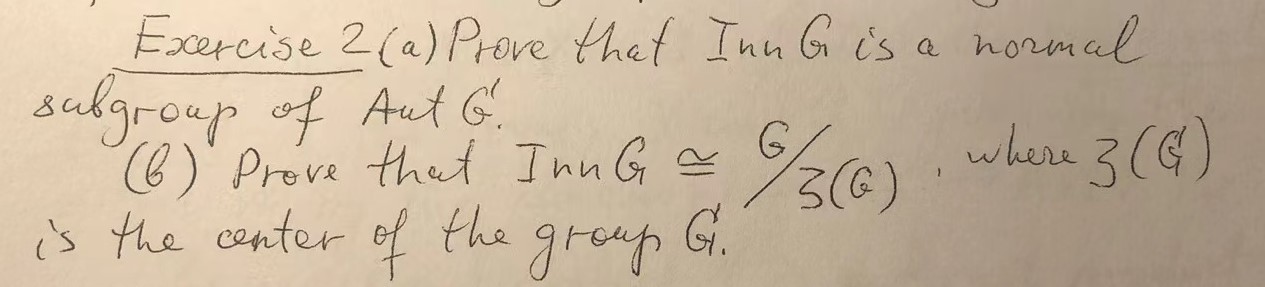 Exercise 2 (a) Prove that Inn G is a normal
subgroup of Aut G.
(b) Prove that Inn G ≅ G/ʒ(G), where ʒ(G)
is the center of the group G.